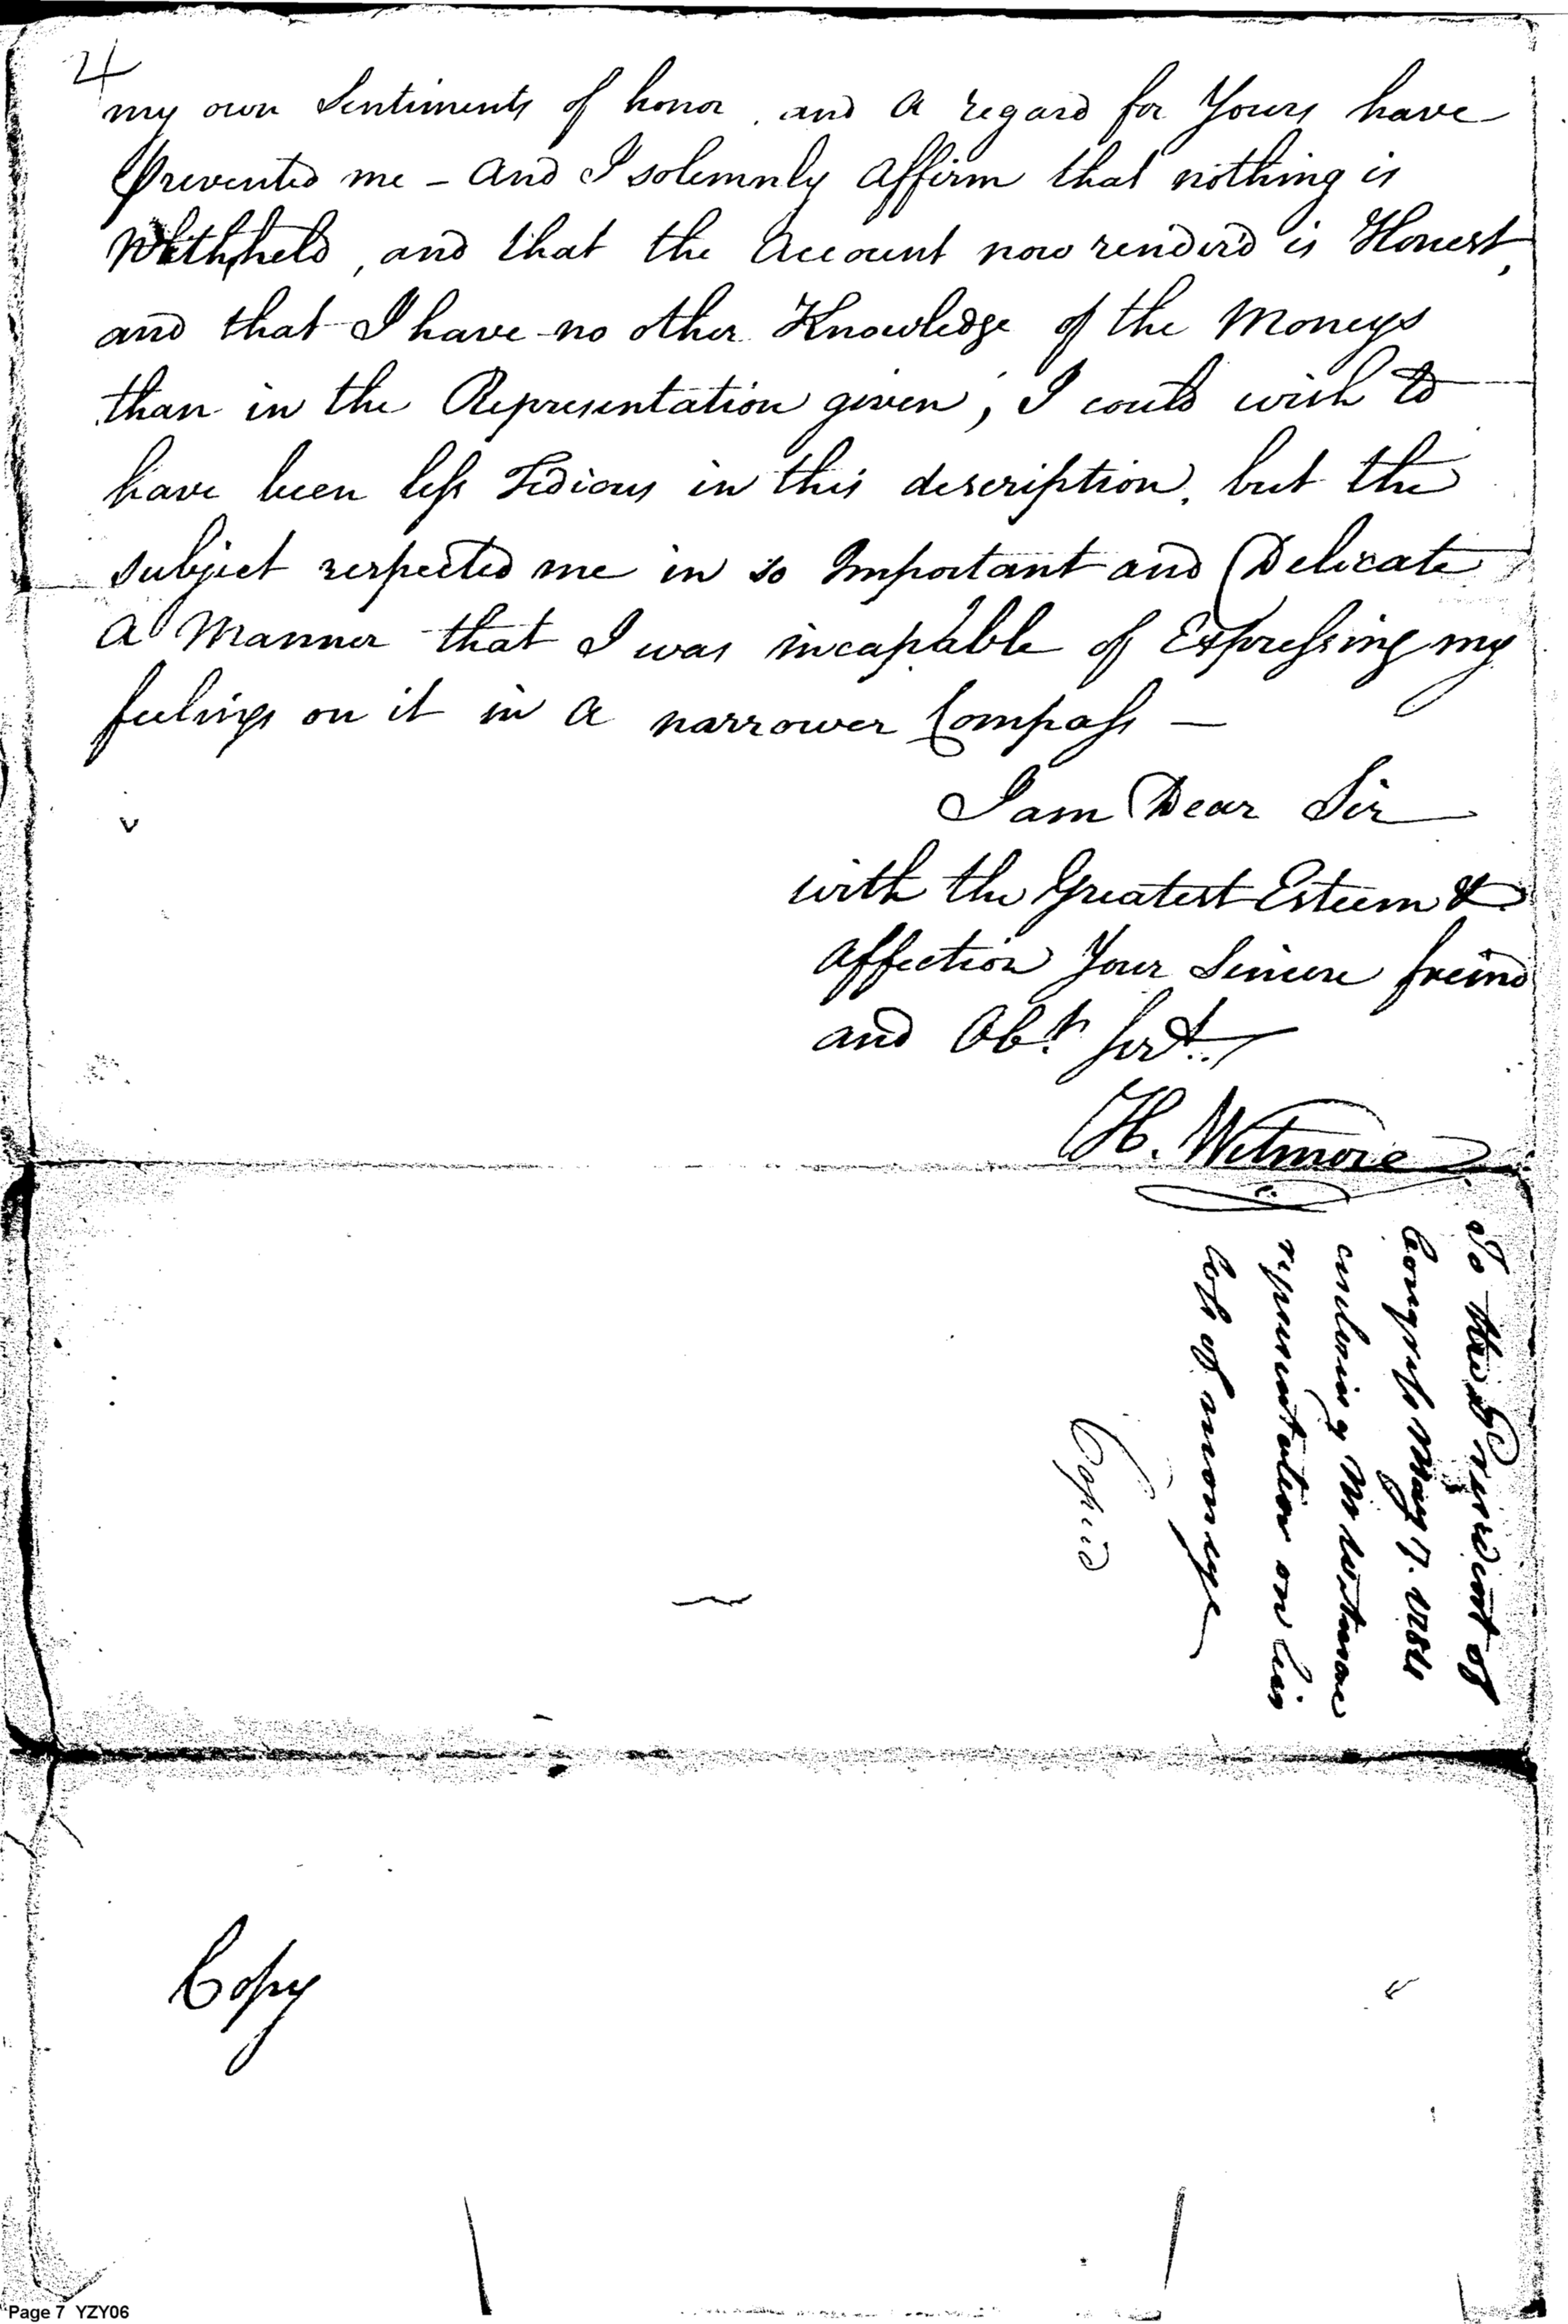 4
my own Sentiments of honor, and a regard for Yours have
Prevented me - and I solemnly affirm that nothing is
Withheld, and that the Account now renderd is Honest,
and that I have no other Knowledge of the Moneys
than in the Representation given; I could wish to
have been less Tedious in this description, but the
subject respected me in so Important and Delicate
a Manner that I was incapable of Expressing my
feelings on it in a narrower Compass —
I am Dear Sir
with the Greatest Esteem &
affection Your Sincere freind
and Obt. Servt.
H. Wetmore
To the President of
Congress May 7. 1784
enclosing Mr Wetmore
representation on his
loss of moneys
Copied
Copy
Page 7 YZY06